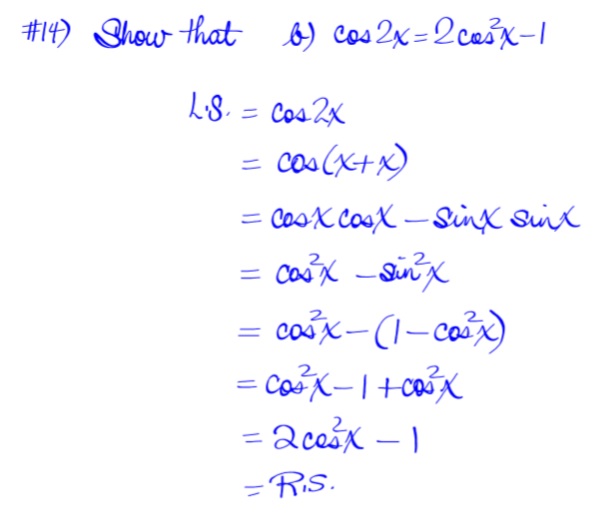 #14) Show that b) cos2x=2cos²x-1
L.S. = cos2x
= cos(x+x)
= cosx cosx - sinx sinx
= cos²x - sin²x
= cos²x - (1-cos²x)
= cos²x - 1 + cos²x
= 2cos²x - 1
= R.S.